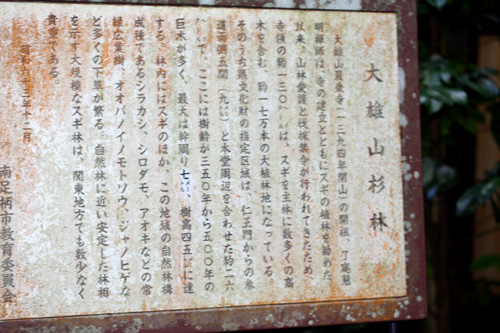 大雄山杉林
大雄山最乗寺(一三九四年開山)の開祖、了庵慧
明禅師は、寺の建立とともにスギの植林を勧めた。
以来、山林愛護と伐採禁令が行われてきたため、
寺領の約一三〇haは、スギを主体に数多くの高
木を含む、約一七万本の大植林地になっている。
そのうち県文化財の指定区域は、仁王門からの参
道両側五間(九m)と本堂周辺を合わせた約二六
haで、ここには樹齢が三五〇年から五〇〇年の
巨木が多く、最大は幹周り七m、樹高四五mに達
する。林内にはスギのほか、この地域の自然林構
成種であるシラカシ、シロダモ、アオキなどの常
緑広葉樹、オオバノイノモトソウ、ジャノヒゲな
ど多くの下草が繁る。自然林に近い安定した林相
を示す大規模なスギ林は、関東地方でも数少なく
貴重である。
昭和六十三年十二月
南足柄市教育委員会